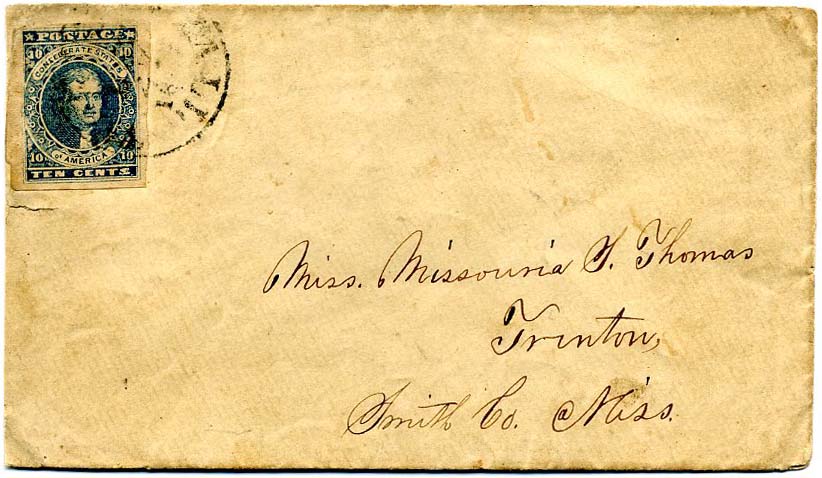 POSTAGE
10 10
CONFEDERATE STATES
OF AMERICA
10 10
TEN CENTS.
Miss. Missouria S. Thomas
Trenton,
Smith Co. Miss.